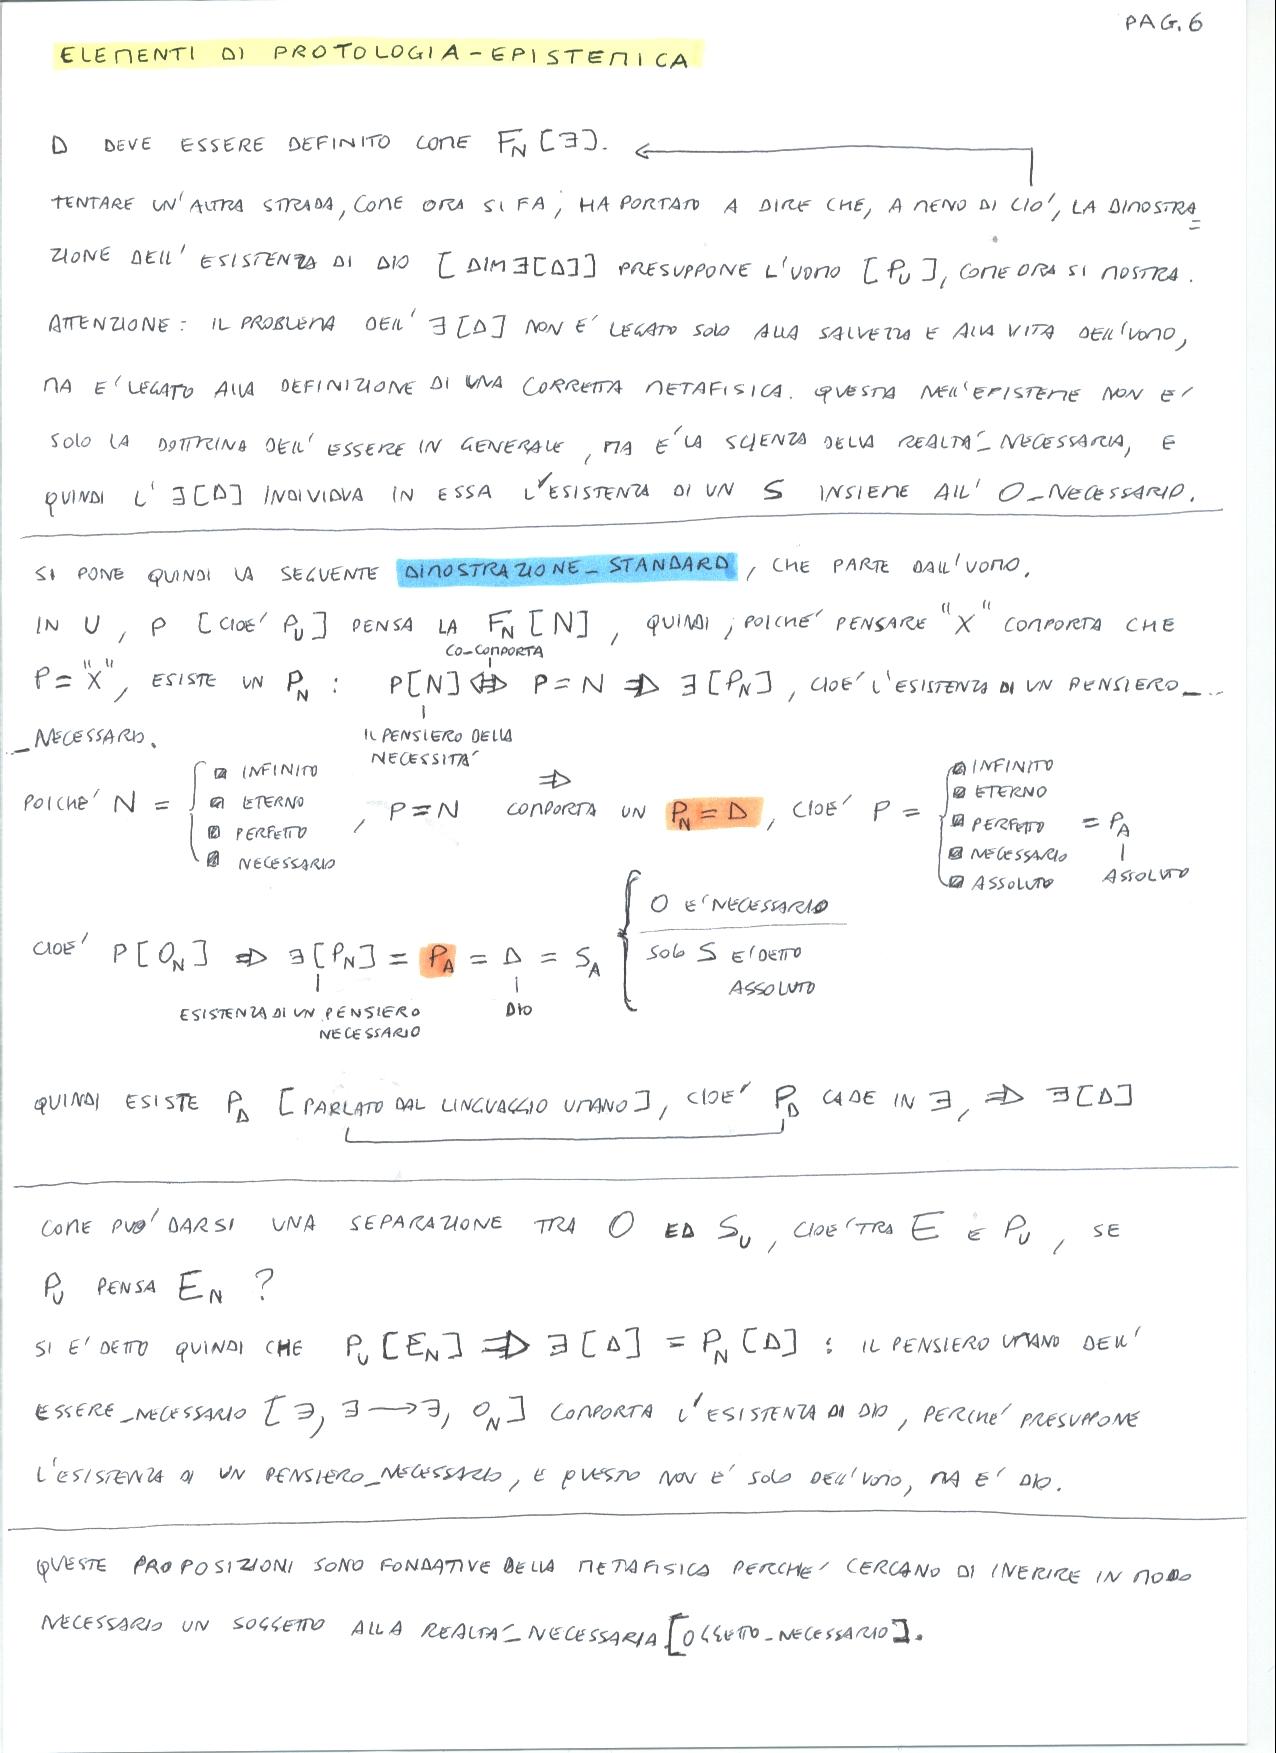 PAG. 6
ELEMENTI DI PROTOLOGIA-EPISTEMICA
D DEVE ESSERE DEFINITO COME F_N [∃].
TENTARE UN'ALTRA STRADA, COME ORA SI FA, HA PORTATO A DIRE CHE, A MENO DI CIO', LA DIMOSTRA=
ZIONE DELL'ESISTENZA DI DIO [DIM∃[Δ]] PRESUPPONE L'UOMO [P_U], COME ORA SI MOSTRA.
ATTENZIONE: IL PROBLEMA DELL'∃[Δ] NON E' LEGATO SOLO ALLA SALVEZZA E ALLA VITA DELL'UOMO,
MA E' LEGATO ALLA DEFINIZIONE DI UNA CORRETTA METAFISICA. QUESTA NELL'EPISTEME NON E'
SOLO LA DOTTRINA DELL'ESSERE IN GENERALE, MA E' LA SCIENZA DELLA REALTA'_NECESSARIA, E
QUINDI L'∃[Δ] INDIVIDUA IN ESSA L'ESISTENZA DI UN S INSIEME ALL'O_NECESSARIO.
SI PONE QUINDI LA SEGUENTE DIMOSTRAZIONE_STANDARD, CHE PARTE DALL'UOMO.
IN U, P [CIOE' P_U] PENSA LA F_N [N], QUINDI, POICHE' PENSARE "X" COMPORTA CHE
CO-COMPORTA
P = "X", ESISTE UN P_N : P[N] ⇔ P = N ⇒ ∃[P_N], CIOE' L'ESISTENZA DI UN PENSIERO_...
..._NECESSARIO.
IL PENSIERO DELLA
NECESSITA'
POICHE' N = { INFINITO
ETERNO
PERFETTO
NECESSARIO
, P = N ⇒ COMPORTA UN P_N = Δ, CIOE' P = { INFINITO
ETERNO
PERFETTO
NECESSARIO
ASSOLUTO
= P_A
ASSOLUTO
CIOE' P[O_N] ⇒ ∃[P_N] = P_A = Δ = S_A { O E' NECESSARIO
SOLO S E' DETTO
ASSOLUTO
ESISTENZA DI UN PENSIERO
NECESSARIO
DIO
QUINDI ESISTE P_Δ [PARLATO DAL LINGUAGGIO UMANO], CIOE' P_Δ CADE IN ∃, ⇒ ∃[Δ]
COME PUO' DARSI UNA SEPARAZIONE TRA O ED S_U, CIOE' TRA E E P_U, SE
P_U PENSA E_N ?
SI E' DETTO QUINDI CHE P_U [E_N] ⇒ ∃[Δ] = P_N [Δ] : IL PENSIERO UMANO DELL'
ESSERE_NECESSARIO [∃, ∃→∃, O_N] COMPORTA L'ESISTENZA DI DIO, PERCHE' PRESUPPONE
L'ESISTENZA DI UN PENSIERO_NECESSARIO, E QUESTO NON E' SOLO DELL'UOMO, MA E' DIO.
QUESTE PROPOSIZIONI SONO FONDATIVE DELLA METAFISICA PERCHE' CERCANO DI INERIRE IN MODO
NECESSARIO UN SOGGETTO ALLA REALTA'_NECESSARIA [OGGETTO_NECESSARIO].